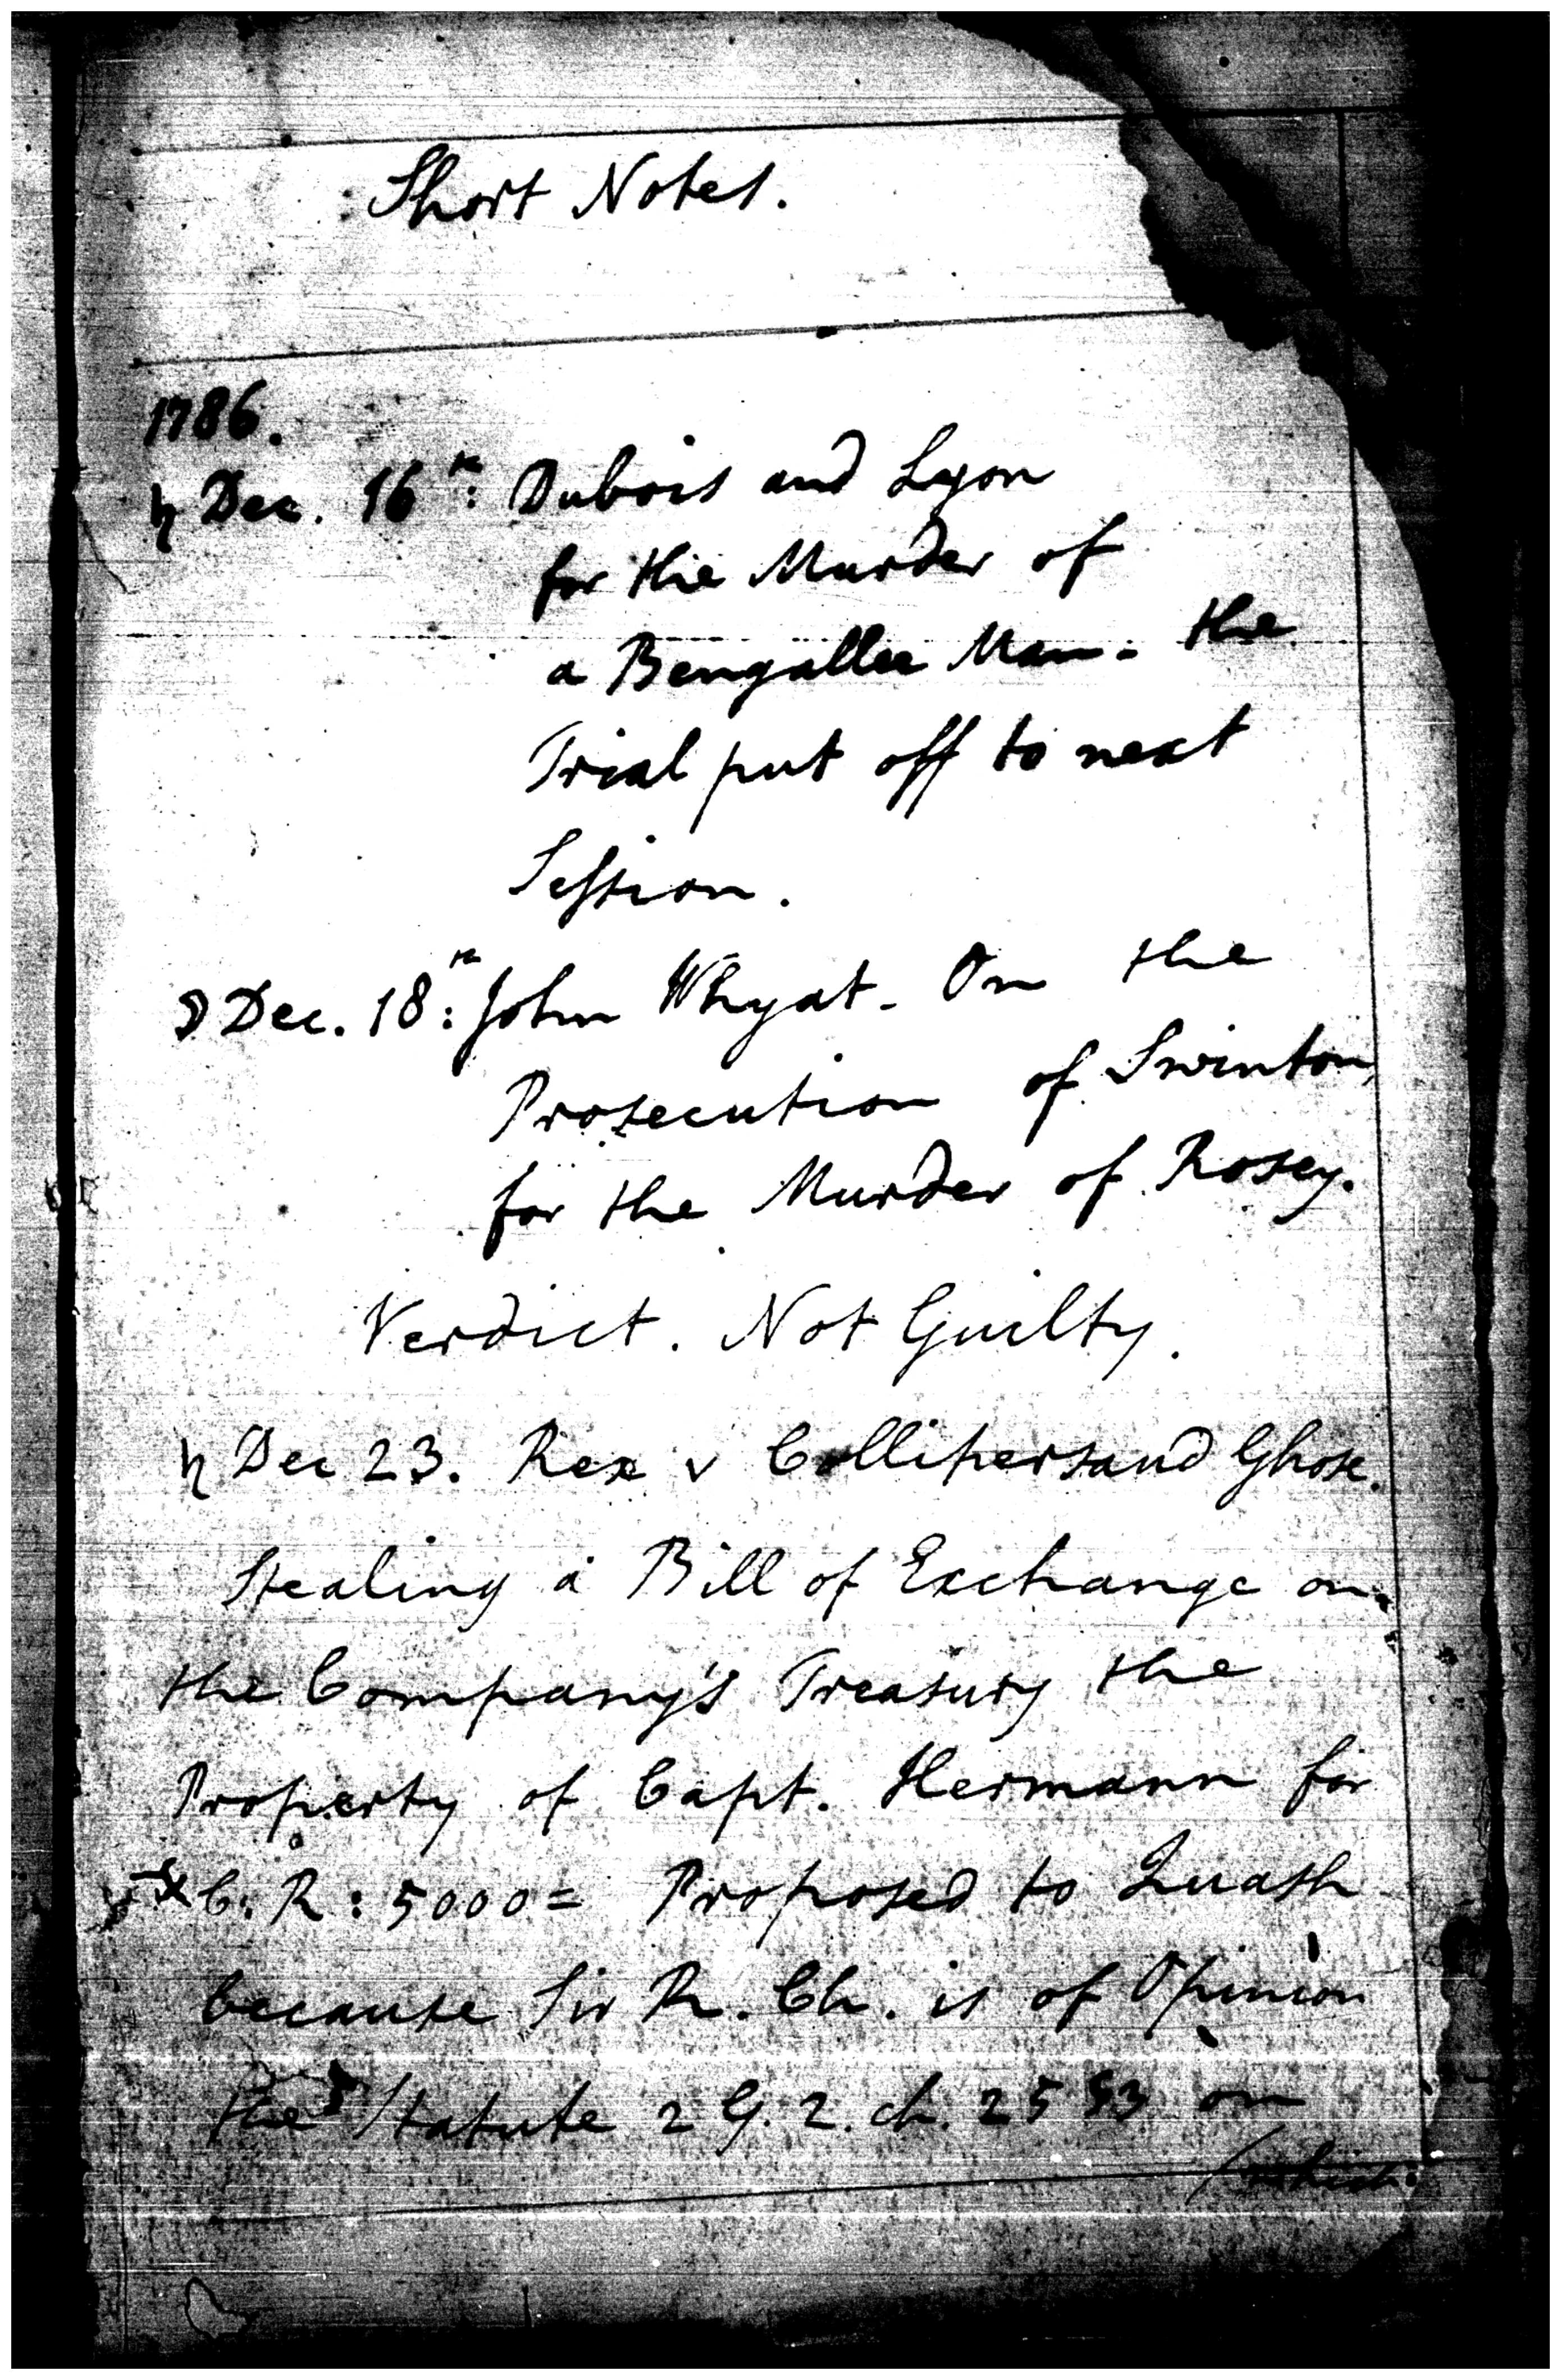 Short Notes.
1786.
♄ Dec. 16th: Dubois and Lyon
for the Murder of
a Bengallee Man - the
Trial put off to next
Session.
☽ Dec. 18th: John Whyat - On the
Prosecution of Swinton,
for the Murder of Rosey.
Verdict. Not Guilty.
♄ Dec 23. Rex v Collipersaud Ghose.
Stealing a Bill of Exchange on
the Company's Treasury the
Property of Capt. Hermann for
C: R: 5000= Proposed to Quash
because Sir R. Ch. is of Opinion
the Statute 2 G. 2. ch. 25 §3 on
/which